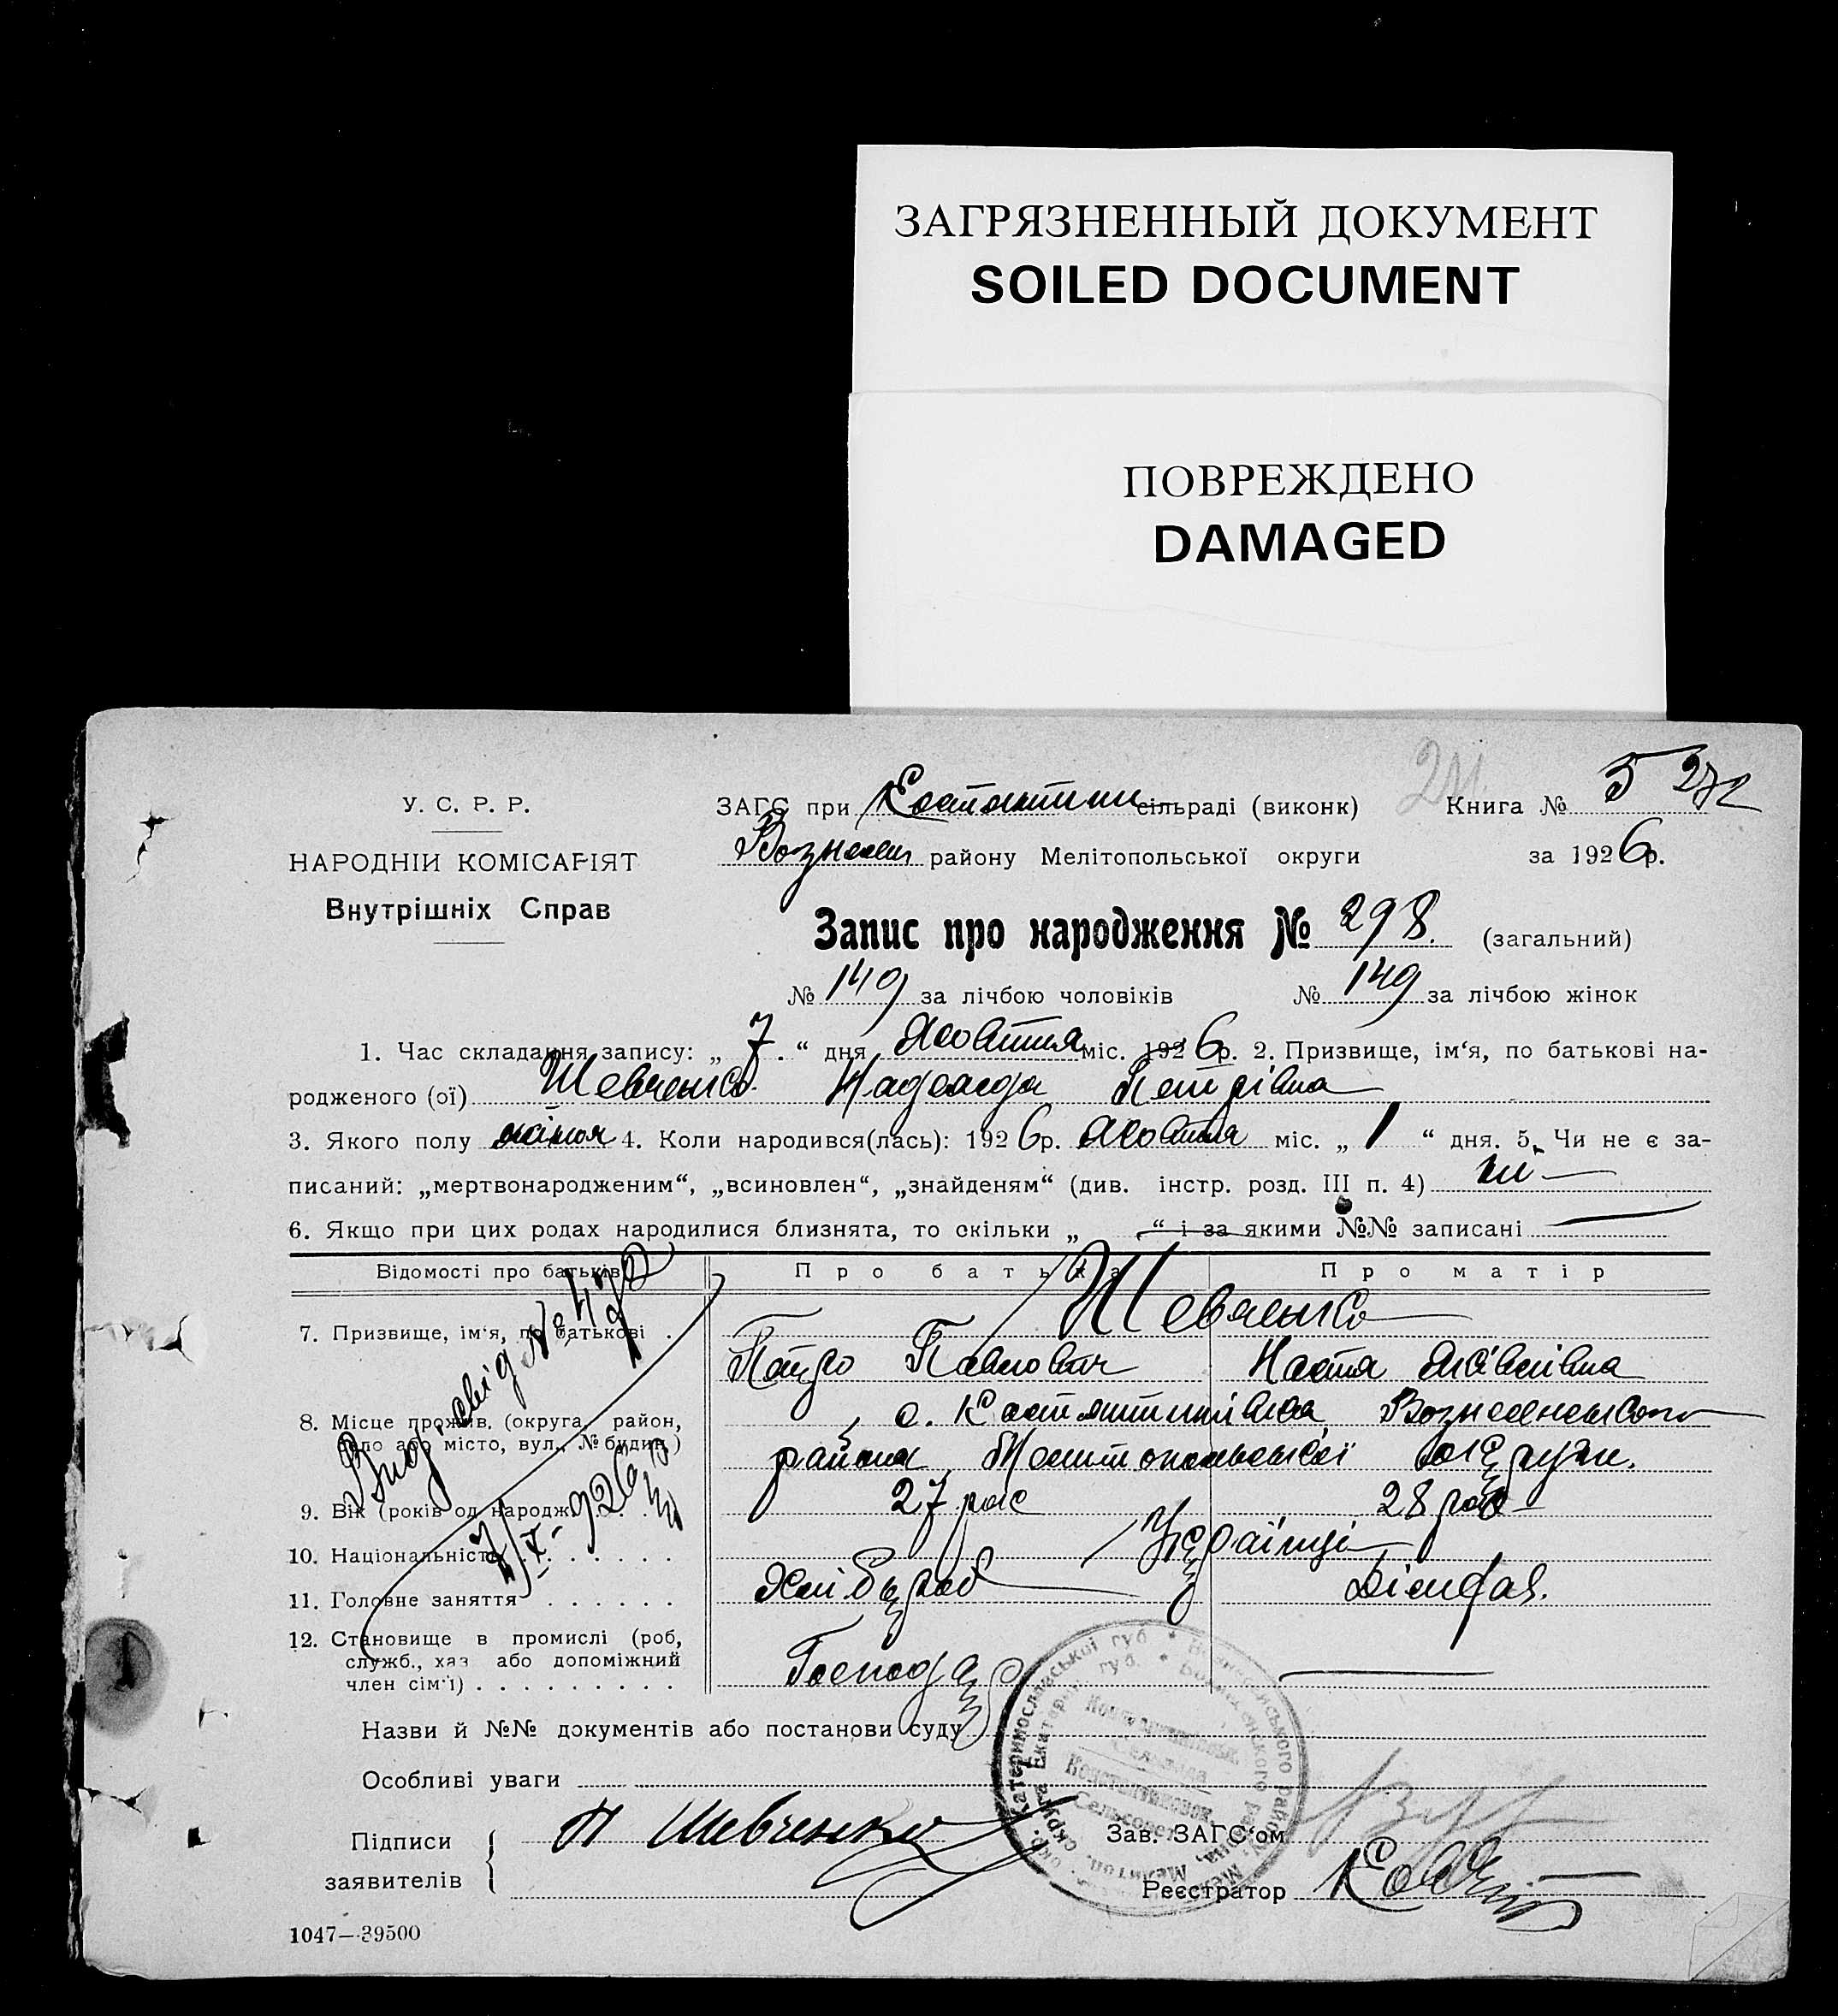 ЗАГРЯЗНЕННЫЙ ДОКУМЕНТ
SOILED DOCUMENT
ПОВРЕЖДЕНО
DAMAGED
У. С. Р. Р.
НАРОДНІЙ КОМІСАРІЯТ
Внутрішніх Справ
ЗАГС при Костянтин сільраді (виконк) Книга № 5 272
Вознесен району Мелітопольської округи за 1926 р.
Запис про народження № 298. (загальний)
№ 149 за лічбою чоловіків № 149 за лічбою жінок
1. Час складання запису: „ 7 . “ дня Жовтня міс. 1926 р. 2. Призвище, ім‘я, по батькові на-
родженого (ої) Шевченко Надежда Петрівна
3. Якого полу жіноч 4. Коли народився(лась): 1926 р. Жовтня міс. „ 1 “ дня. 5. Чи не є за-
писаний: „мертвонародженим“, „всиновлен“, „знайденям“ (див. інстр. розд. III п. 4) ні
6. Якщо при цих родах народилися близнята, то скільки „ “ і за якими №№ записані
Відомості про батьків Про батька Про матір
7. Призвище, ім‘я, по батькові . Шевченко
Петро Павлович Настя Яківлівна
8. Місце прожив. (округа, район, с. Костянтинівка, Вознесенського
село або місто, вул., № будин.) района, Мелитопольської округи.
9. Вік (років од народж.) . . . 27 рок 28 рок
10. Національність . . . . . . . Українці
11. Головне заняття . . . . . . Хлібороб
12. Становище в промислі (роб,
служб., хаз або допоміжний Господар
член сім‘ї) . . . . . . . . .
Вид. свід №
Назви й №№ документів або постанови суду
Особливі уваги
Підписи П Шевченко Зав. ЗАГС‘ом
заявителів Реєстратор
1047—39500